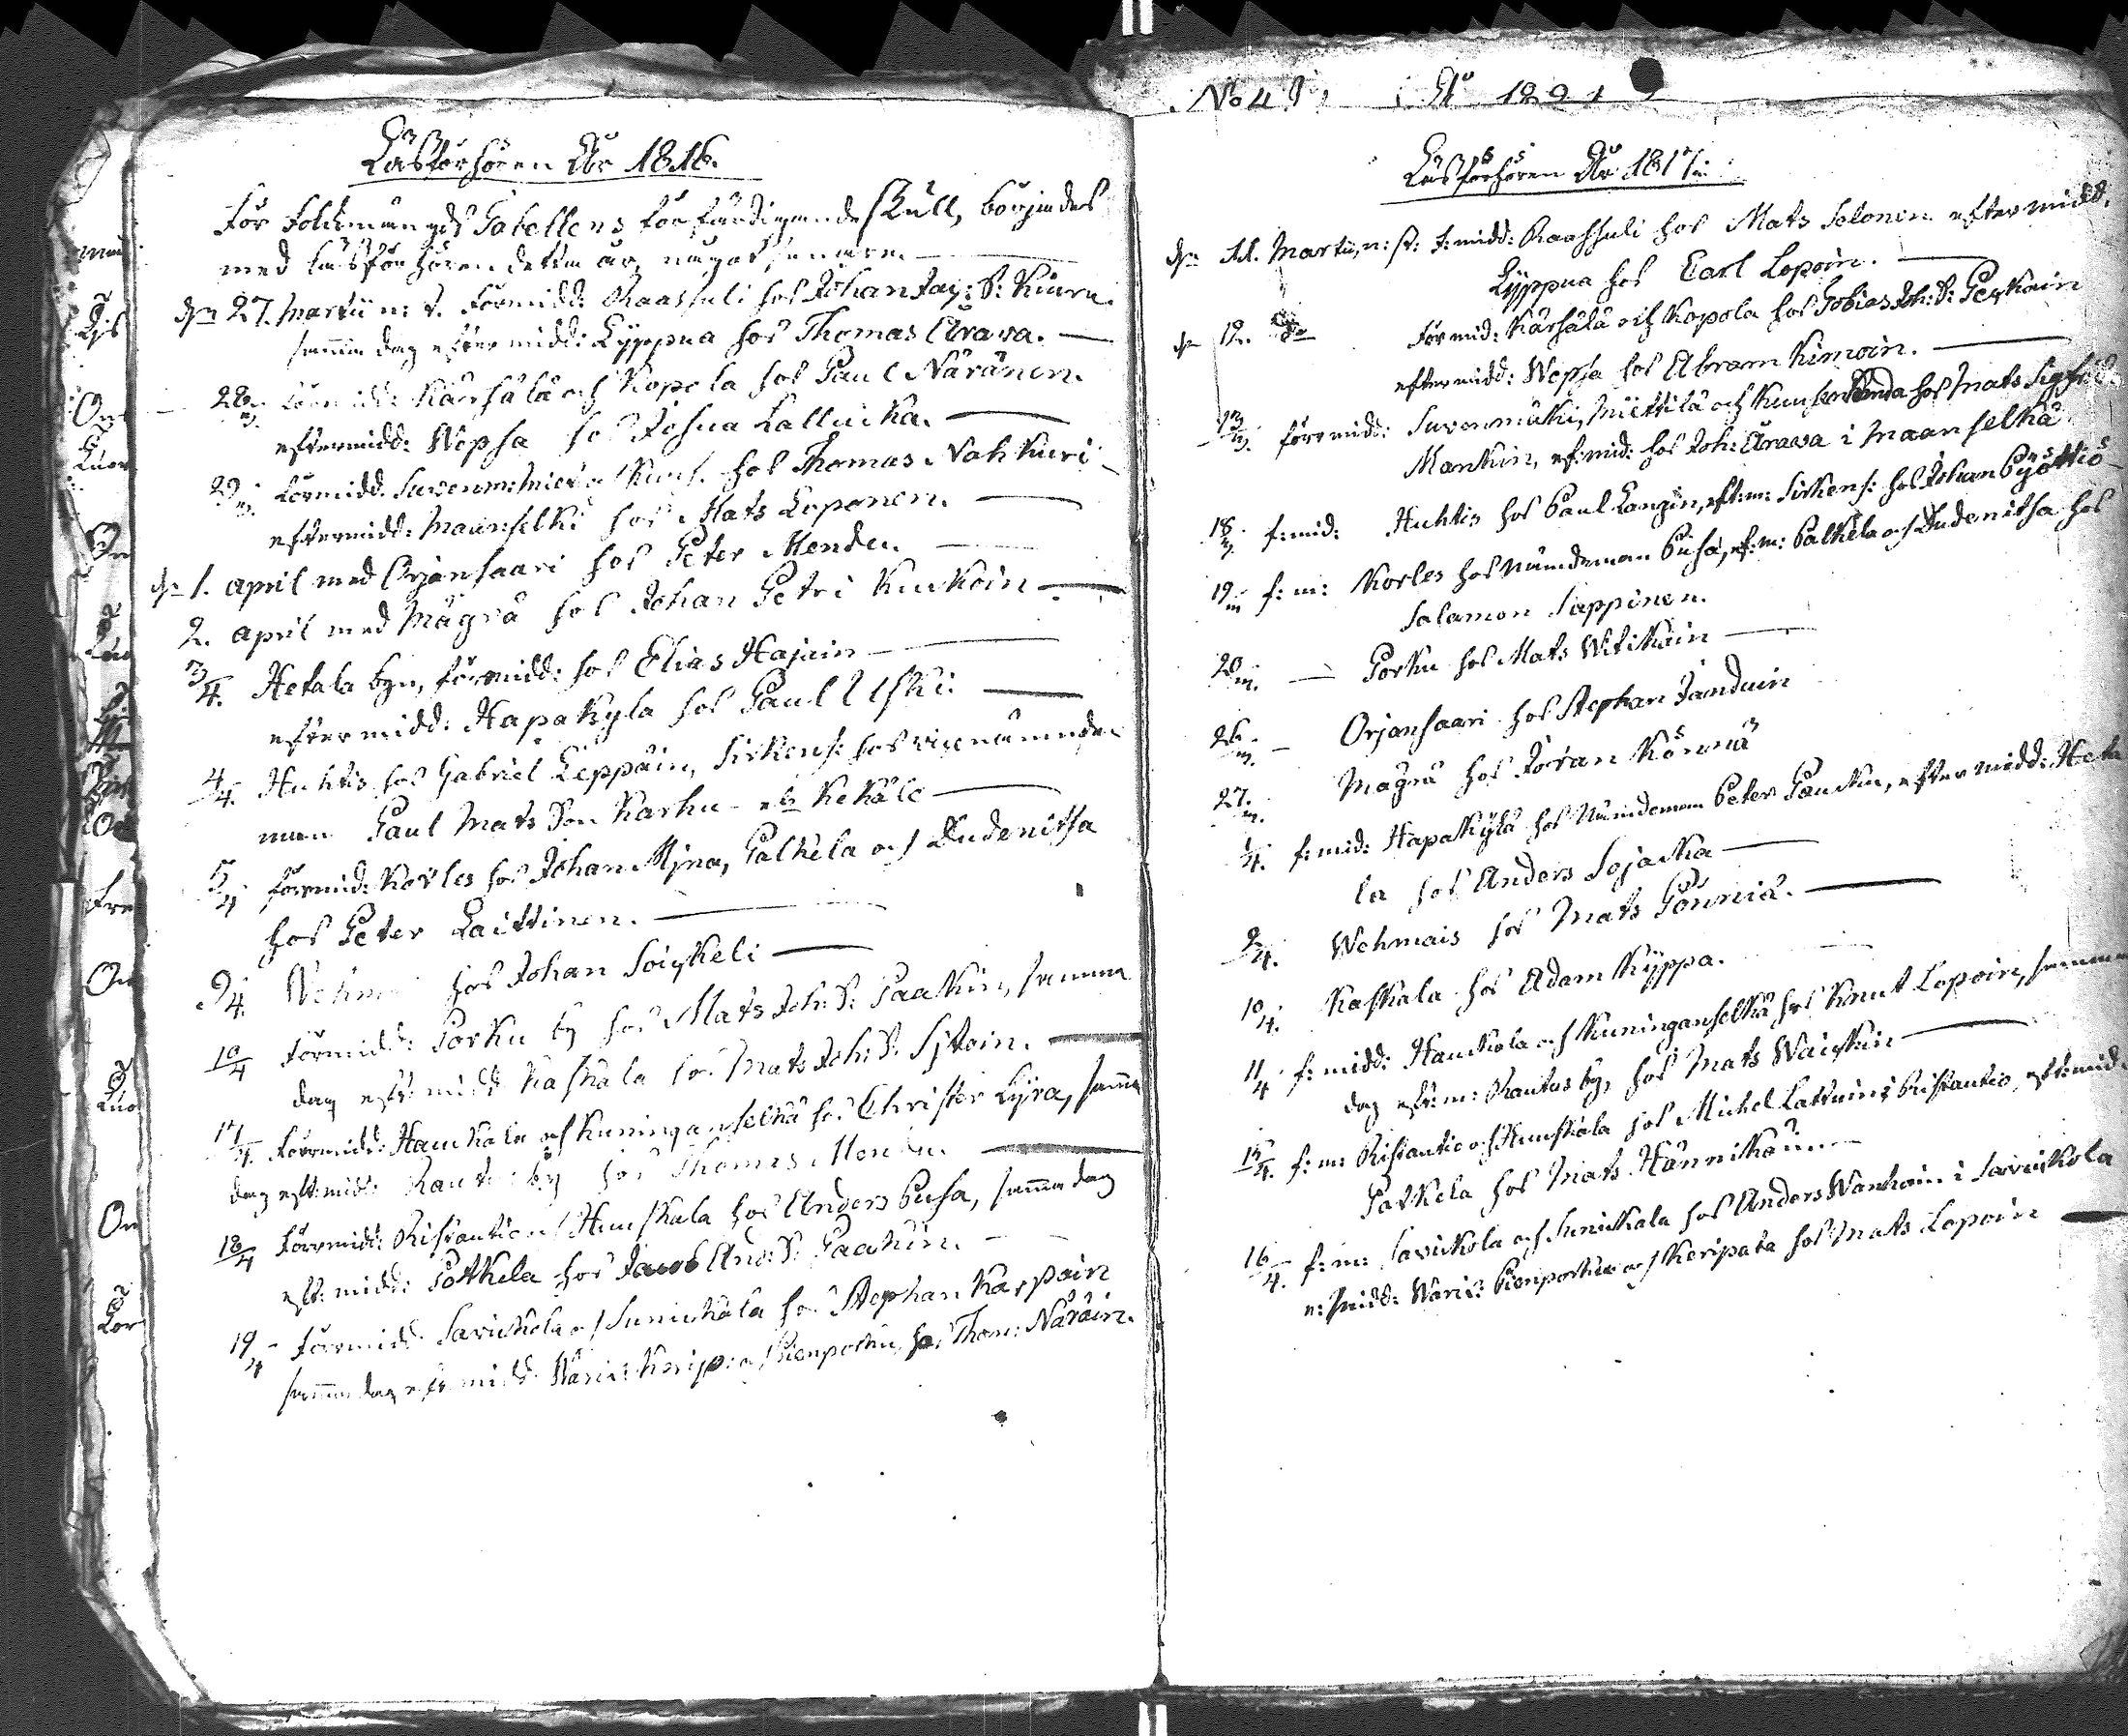 Läsförhören År 1816.
För Folkmängds Tabellens förfärdigande skull, börjades
med läsförhören detta år, något senare.
den 27. Martii n: s. Förmidd: Raasuli hos Johan Joh: S: Kiuru.
samma dag efter midd: Lyppua hos Thomas Ärava.
28/3. förmidd: Kärsälä och Kopola hos Paul Näränen.
eftermidd: Wepsa hos Josua Lallucka.
29/3. förmidd. Suvenm: Miet: och Kuus. hos Thomas Nahkuri
eftermidd: Maanselkä hos Mats Loponen.
den 1. april med Orjansaari hos Peter Mendu.
2. april med Mägrä hos Johan Petri Kuckoin
3/4. Hetala by, förmidd: hos Elias Hajain
eftermidd: Hapakyla hos Paul Uski.
4/4. Huhtis hos Gabriel Leppäin, Sirkens: hos vice nämnde
man Paul Mats Son Karhu Kekäle
5/4 förmid: Korles hos Johan Myra, Palkela och Dudenitsa
hos Peter Laittinen.
9/4. Wehm hos Johan Soickeli
10/4 Förmidd: Porku by hos Mats Joh: S: Paakin, samma
dag eft: midd: Kaskala hos Mats Joh: S: Sitoin.
17/4. Förmidd: Hauckala och Kuninganselkä hos Christer Lyra, samma
dag eft: midd: Rautus by hos Thomas Mendu.
18/4 Förmidd: Ristautio och Huuskala hos Anders Pusa, samma dag
eft: midd: Potkela hos Jacob And: S: Paakin.
19/4 Förmidd: Savickola och Sunickala hos Stephan Karpain
samma dag eft: midd: Waris: Kerip: och Pienporku hos Thom: Näräin.
No 4
År 1821
Läsförhören År 1817:
den 11. Martii, n: st: f:midd: Raasuli hos Mats Solonen eftermidd.
Lyppua hos Carl Lopoin.
den 12. dito Förmid: Kärsälä och Kopola hos Tobias Joh: S: Peskain
eftermidd: Wepsa hos Abram Kimoin.
13/3. förmidd: Suvenmäki, Miettilä och Kuusenkanda hos Mats Sigfrid:
Mankin, ef:mid: hos Joh: Ärava i Maanselkä
18/3. f:mid: Huhtis hos Paul Langin, eft:m: Sirkens: hos Johan Pyöttiö
19/m f: m: Korles hos Nämdeman Pusa, ef:m: Palkela och Dudenitsa hos
Salamon Sappinen.
20/m. Porku hos Mats Witikäin
26/m. Orjansaari hos Stephan Jamduin
27/m. Mägrä hos Jöran Körmä
1/4. f:mid: Hapakylä hos Nämdeman Peter Pauku, eftermidd: Heta
la hos Anders Sojacka
9/4. Wehmais hos Mats Pöuniä.
10/4. Kaskala hos Adam Kyppa.
11/4 f: midd: Hauckola och Kuninganselkä hos Knut Lopoin, samma
dag eft: m: Rautus by, hos Mats Waiskin
15/4. f: m: Ristautio och Huuskala hos Michel Lattuin i Ristautio, eft:mid.
Potkela hos Mats Hännikäin.
16/4. f: m: Savickola och Sunickala hos Anders Wanhain i Savickola
e: midd: Waris: Pienporku och Keripata hos Mats Lopoin